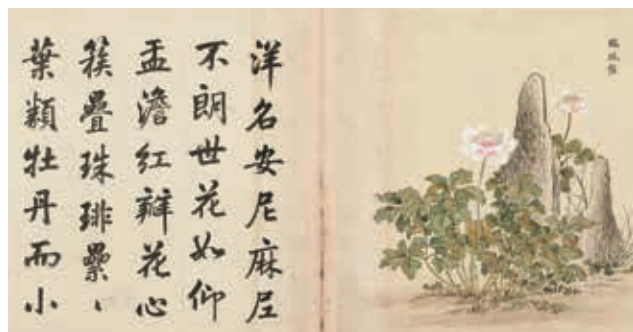 洋名安尼麻尼
不朗世花如仰
盂澹紅瓣花心
簇疊珠琲纍丶
葉類牡丹而小